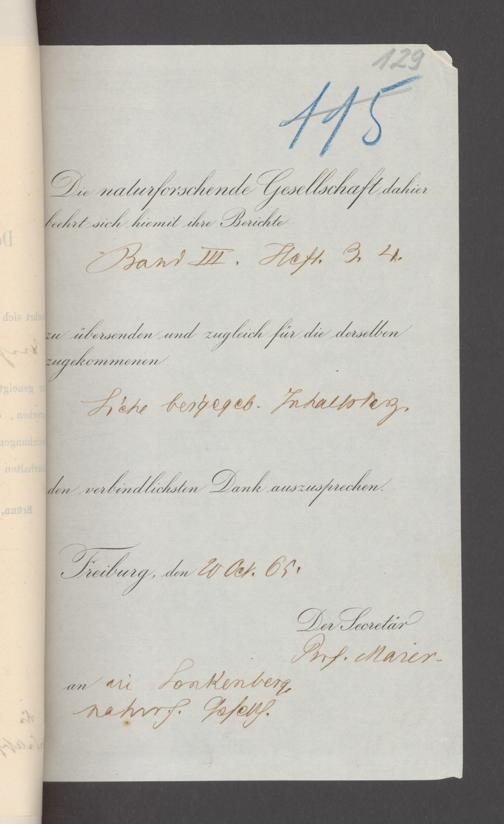 129
115
Die naturforschende Gesellschaft dahier
beehrt sich hiemit ihre Berichte
Band III. Heft. 3. 4.
zu übersenden und zugleich für die derselben
zugekommenen
Siehe beigegeb. Inhaltsverz.
den verbindlichsten Dank auszusprechen.
Freiburg, den 20 Oct. 65.
Der Secretär
Prof. Maier.
an
naturf. Gesells.